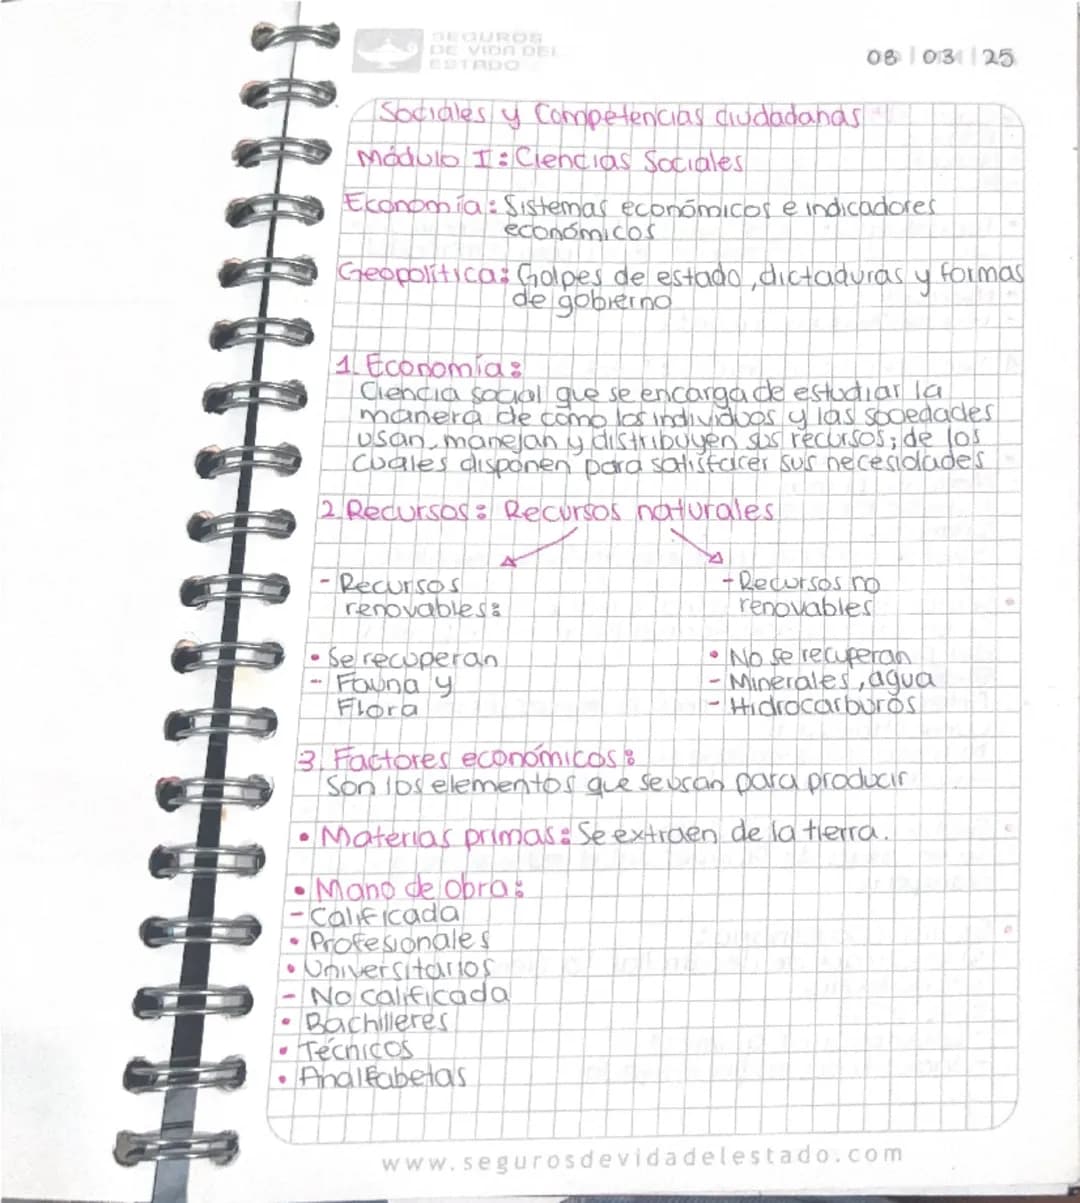 SEGUROS
DE VIDA DEL
ESTADO
08 03 25
Sociales y Competencias ciudadanas
Módulo I: Ciencias Sociales
Economía: Sistemas económicos e indicadores
económicos
Geopolítica: Golpes de estado, dictaduras y formas
de gobierno
1. Economía:
Ciencia social que se encarga de estudiar la
manera de cómo los individuos y las sociedades
usan, manejan y distribuyen sus recursos; de los
cuales disponen para satisfacer sus necesidades
2. Recursos: Recursos naturales
- Recursos
renovables:
• Se recuperan
- Fauna y
Flora
- Recursos no
renovables
• No se recuperan
- Minerales, agua
- Hidrocarburos
3. Factores económicos:
Son los elementos que se usan para producir
• Materias primas: Se extraen de la tierra.
• Mano de obra:
- Calificada
• Profesionales
• Universitarios
- No calificada
• Bachilleres
• Técnicos
• Analfabetas
www.segurosdevidadelestado.com